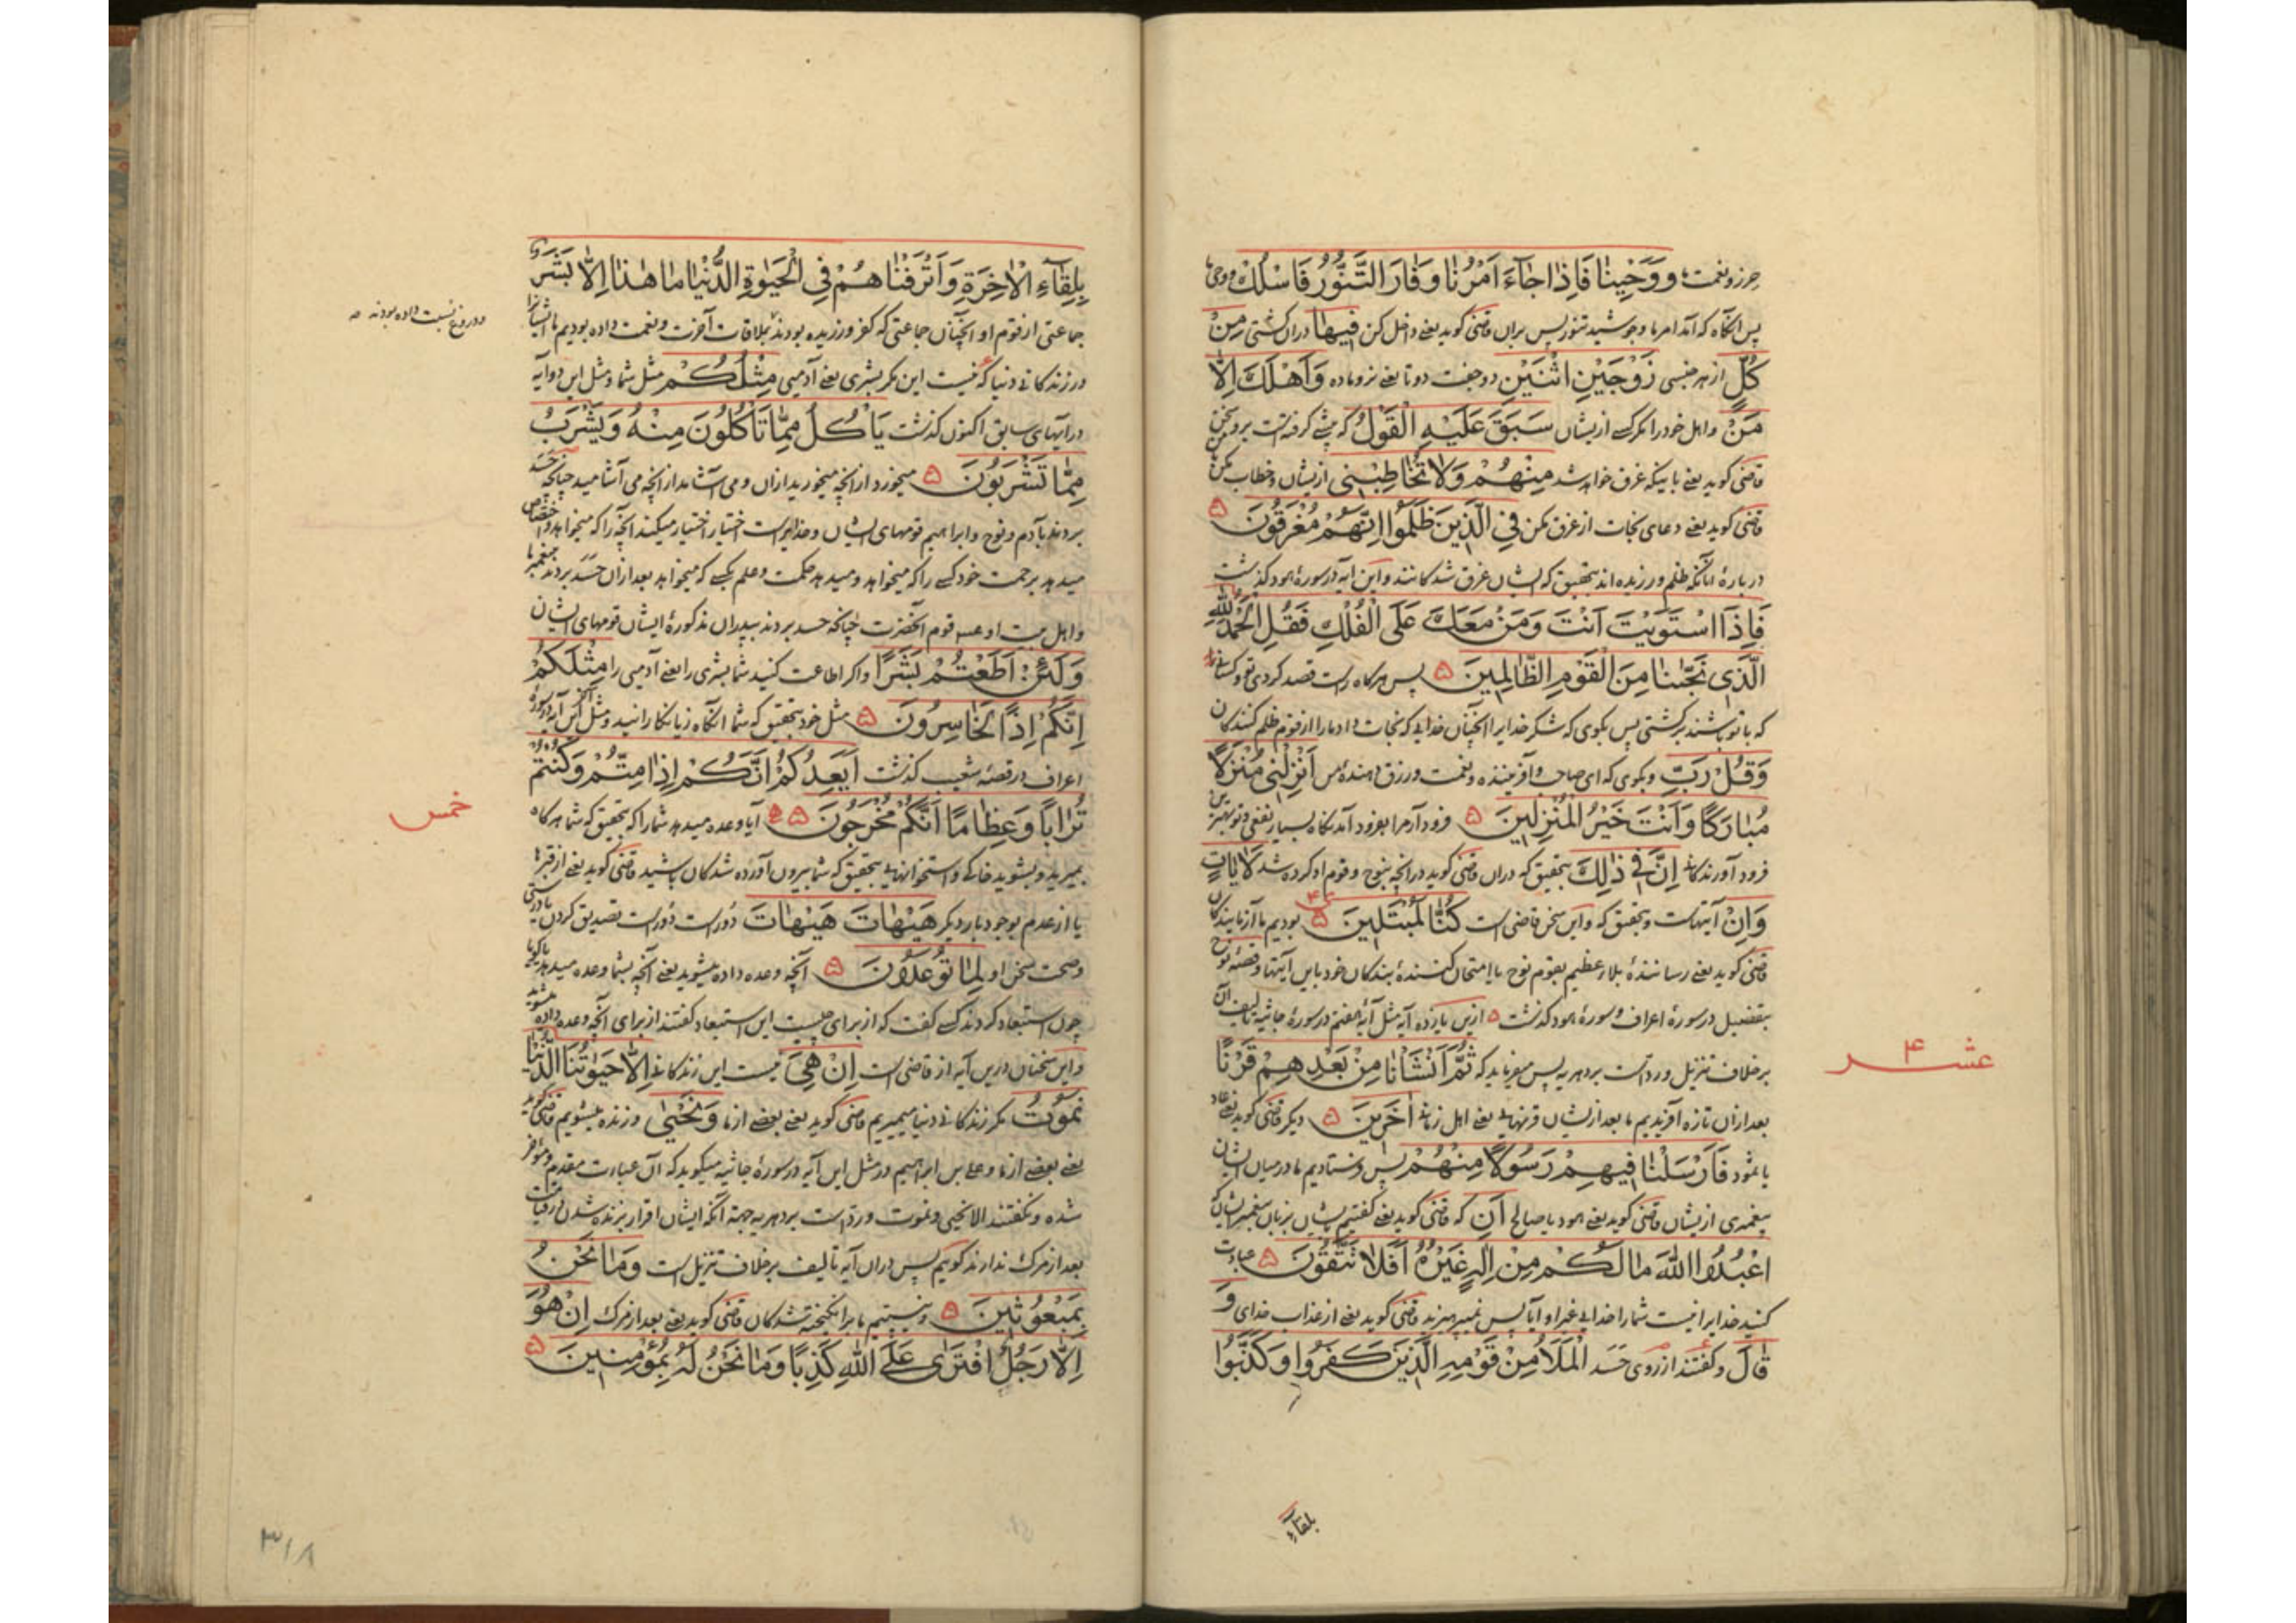 وَوَحْيِنٰا فَاِذٰا جٰٓاءَ اَمْرُنٰا وَفٰارَ التَّنُّورُ فَاسْلُكْ
پس آنگاه که آمد امر ما و جوشید تنور پس بران قاضی کوید یعنی داخل کن فیهٰا دران کشتی مِنْ
كُلٍّ از هر جنسی زَوْجَيْنِ اثْنَيْنِ دو جفت دو تا یعنی نر و ماده وَاَهْلَكَ اِلّٰا
مَنْ و اهل خود را مکر کسی از یشان سَبَقَ عَلَيْهِ الْقَوْلُ که پیشی کرفته است برو سخن
قاضی کوید یعنی باینکه غرق خواهد شد مِنْهُمْ وَلٰا تُخٰاطِبْنى از یشان و خطاب مکن
قاضی کوید یعنی دعای نجات از غرق مکن فِي الَّذينَ ظَلَمُوا اِنَّهُمْ مُغْرَقُونَ
درباره آنانکه ظلم ورزیده اند بتحقیق که ایشان غرق شدکانند و این آیه در سورهٔ هود کذشت
فَاِذَا اسْتَوَيْتَ اَنْتَ وَمَنْ مَعَكَ عَلَى الْفُلْكِ فَقُلِ الْحَمْدُ لِلّٰهِ
الَّذى نَجّٰينٰا مِنَ الْقَوْمِ الظّٰالِمينَ پس هر کاه راست قصد کردی تو و کسانی
که با تو باشند بر کشتی پس بکوی که شکر خدایرا آنچنان خدایی که نجات داد ما را از قوم ظلم کنندکان
وَقُلْ رَبِّ و بکوی که ای صاحب و آفریننده و نعمت و رزق دهندهٔ من اَنْزِلْنى مُنْزَلًا
مُبٰارَكًا وَاَنْتَ خَيْرُ الْمُنْزِلينَ فرود آر مرا بفرود آمدنکاه بسیار نفعی و تو بهترین
فرود آورندکانی اِنَّ فى ذٰلِكَ بتحقیق که دران قاضی کوید در آنچه بنوح و قوم او کرده شد لَاٰيٰاتٍ
وَاِنْ آیتهاست و بتحقیق که و این سخن قاضی است كُنّٰا لَمُبْتَلينَ بودیم ما آزمایندکان
قاضی کوید یعنی رسانندهٔ بلاء عظیم بقوم نوح یا امتحان کنندهٔ بندکان خود باین آیتها و قصهٔ نوح
بتفصیل در سورهٔ اعراف و سورهٔ هود کذشت ازین یازده آیه مثل آیهٔ هفتم در سورهٔ جاثیه تالیف آن
بر خلاف تنزیل و رد است بر دهریه پس میفرماید که ثُمَّ اَنْشَاْنٰا مِنْ بَعْدِهِمْ قَرْنًا
بعد از ان تازه آفریدیم ما بعد از یشان قرنهایی یعنی اهل زمانی اٰخَرينَ دیکر قاضی کوید یعنی عاد
یا ثمود فَاَرْسَلْنٰا فيهِمْ رَسُولًا مِنْهُمْ پس فرستادیم ما در میان ایشان
پیغمبری از یشان قاضی کوید یعنی هود یا صالح اَنِ که قاضی کوید یعنی کفتیم بایشان بزبان پیغمبر ایشان
اعْبُدُوا اللّٰهَ مٰا لَكُمْ مِنْ اِلٰهٍ غَيْرُهُ اَفَلٰا تَتَّقُونَ عبادت
کنید خدایرا نیست شما را خدایی غیر او آیا پس نمیپرهیزند قاضی کوید یعنی از عذاب خدای وَ
قٰالَ و کفتند از روی حسد الْمَلَاُ مِنْ قَوْمِهِ الَّذينَ كَفَرُوا وَكَذَّبُوا
بلقآء
عشر
۴
بِلِقٰٓاءِ الْاٰخِرَةِ وَاَتْرَفْنٰاهُمْ فِي الْحَيٰوةِ الدُّنْيٰا مٰا هٰذٰا اِلّٰا بَشَرٌ
جماعتی از قوم او آنچنان جماعتی که کفر ورزیده بودند بملاقات آخرت و نعمت داده بودیم ما ایشانرا
در زندکانی دنیا که نیست این مکر بشری یعنی آدمیی مِثْلُكُمْ مثل شما و مثل این دو آیه
در آیتهای سابق اکنون کذشت يَاْكُلُ مِمّٰا تَاْكُلُونَ مِنْهُ وَيَشْرَبُ
مِمّٰا تَشْرَبُونَ میخورد از آنچه میخورید ازان و می آشامد از آنچه می آشامید چنانکه حسد
بردند بآدم و نوح و ابراهیم قومهای ایشان و خدایراست اختیار اختیار میکند آنچه را که میخواهد و اختصاص
میدهد برحمت خود کسی را که میخواهد و میدهد حکمت و علم بکسی که میخواهد بعد ازان حسد بردند پیغمبر ما
و اهل بیت او قوم آنحضرت چنانکه حسد بردند بپدران مذکورهٔ ایشان قومهای ایشان
وَلَئِنْ اَطَعْتُمْ بَشَرًا و اکر اطاعت کنید شما بشری را یعنی آدمیی را مِثْلَكُمْ
اِنَّكُمْ اِذًا لَخٰاسِرُونَ مثل خود بتحقیق که شما آنکاه زیانکارانید و مثل این آیه در سورهٔ
اعراف در قصهٔ شعیب کذشت اَيَعِدُكُمْ اَنَّكُمْ اِذٰا مِتُّمْ وَكُنْتُمْ
تُرٰابًا وَعِظٰامًا اَنَّكُمْ مُخْرَجُونَ آیا وعده میدهد شما را که بتحقیق که شما هر کاه
بمیرید و بشوید خاکی و استخوانهایی بتحقیق که شما بیرون آورده شدکان باشید قاضی کوید یعنی از قبرها
یا از عدم بوجود بار دیکر هَيْهٰاتَ هَيْهٰاتَ دور است دور است تصدیق کردن
و صحت سخن او لِمٰا تُوعَدُونَ آنچه وعده داده میشوید یعنی آنچه بشما وعده میدهد
چون استبعاد کردند کسی کفت که از برای چیست این استبعاد کفتند از برای آنچه وعده داده میشوید
و این سخنان درین آیه از قاضی است اِنْ هِيَ نیست این زندکانی اِلّٰا حَيٰوتُنَا الدُّنْيٰا
نَمُوتُ مکر زندکانی دنیا میمیریم قاضی کوید یعنی بعضی از ما وَنَحْيٰى و زنده میشویم قاضی کوید
یعنی بعضی از ما و علی بن ابراهیم در مثل این آیه در سورهٔ جاثیه میکوید که آن عبارت مقدم و مؤخر
شده و نکفتند الا نحیی و نموت و رد است بر دهریه جهة آنکه ایشان اقرار بزنده شدن
بعد از مرک ندارند کوییم پس دران آیه تالیف بر خلاف تنزیل است وَمٰا نَحْنُ
بِمَبْعُوثينَ و نیستیم ما برانکیخته شدکان قاضی کوید یعنی بعد از مرک اِنْ هُوَ
اِلّٰا رَجُلٌ افْتَرٰى عَلَى اللّٰهِ كَذِبًا وَمٰا نَحْنُ لَهُ بِمُؤْمِنينَ
و دروغ نسبت داده بودند
خمس
۳۱۸